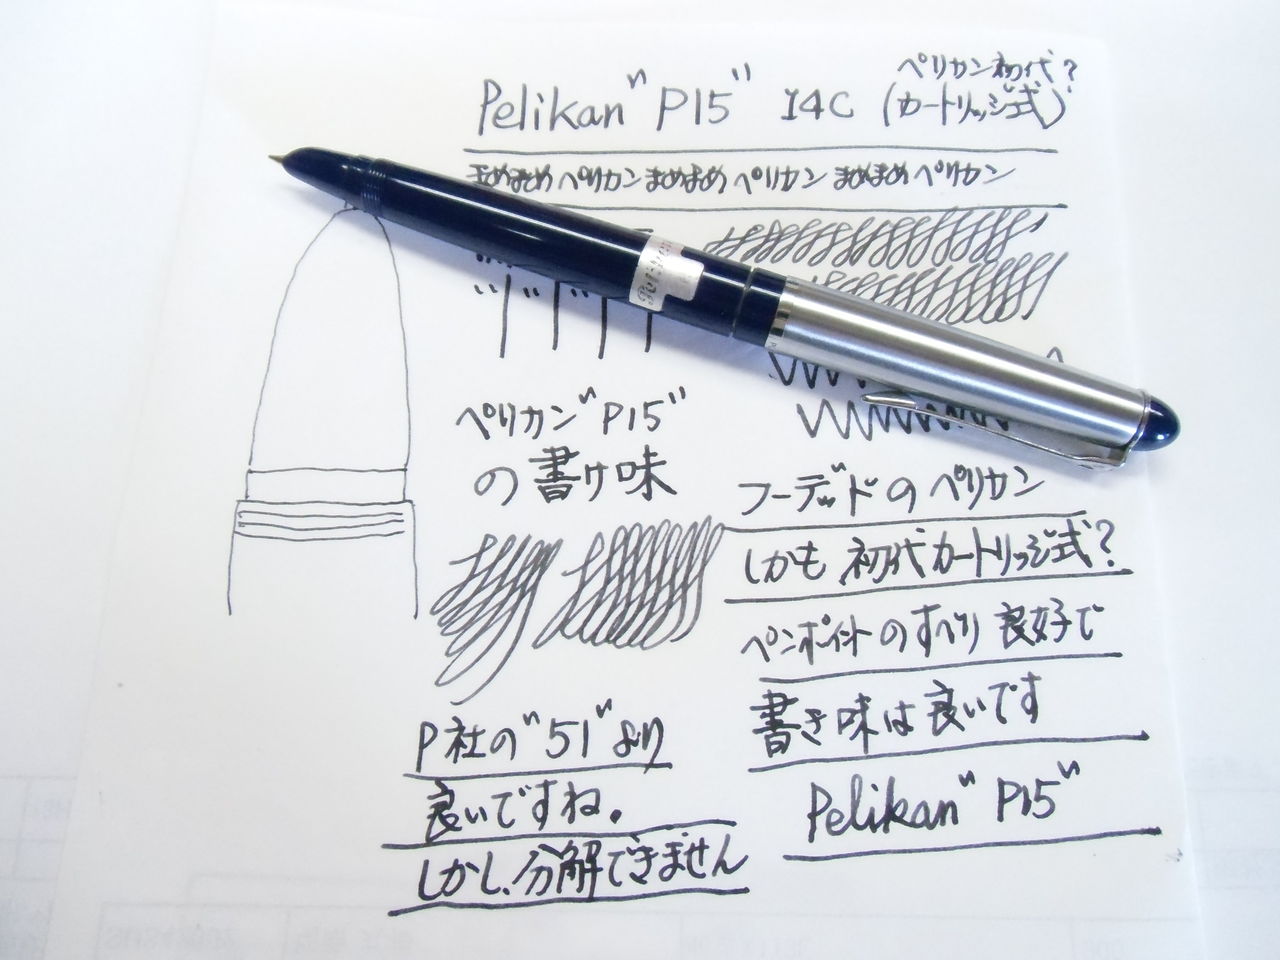 ペリカン初代?
Pelikan "P15" 14C (カートリッジ式)
まめまめペリカンまめまめペリカン まめまめペリカン
ペリカン"P15"
の書け味
フーデッドのペリカン
しかも初代カートリッジ式?
ペンポイントのすべり良好で
書き味は良いです
Pelikan "P15"
P社の"51"より
良いですね。
しかし、分解できません